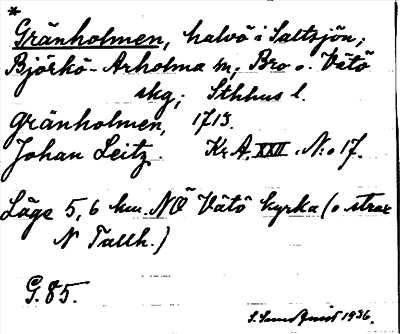 *
Gränholmen, halvö i Saltsjön;
Björkö-Arholma sn; Bro o. Vätö
skg; Sthhus l.
Gränholmen, 1713.
Johan Leitz. Kr.A. XXII. N:o 17.
Läge 5,6 km. NÖ Vätö kyrka (o strax
N Tallh.)
G. 85.
1936.